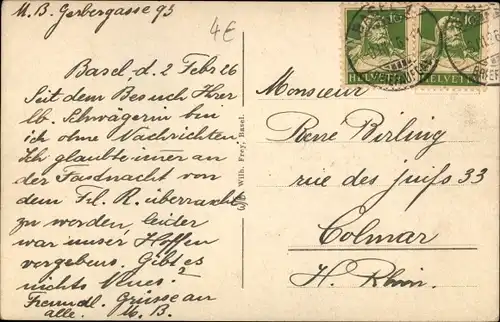 M. B. Gerbergasse 93
4€
Basel, d. 2 Febr 26
Seit dem Besuch Ihrer
lb. Schwägerin bin
ich ohne Nachrichten
Ich glaubte imer an
der Fasdnacht von
dem Frl. R. überrascht
zu werden, leider
war unser Hoffen
vergebens. Gibt es
nichts Neues?
Freundl. Grüsse an
alle. M. B.
Wilh. Frey, Basel.
10 10
HELVETIA HELVETIA
Monsieur
René Birling
rue des juifs 33
Colmar
H. Rhin.